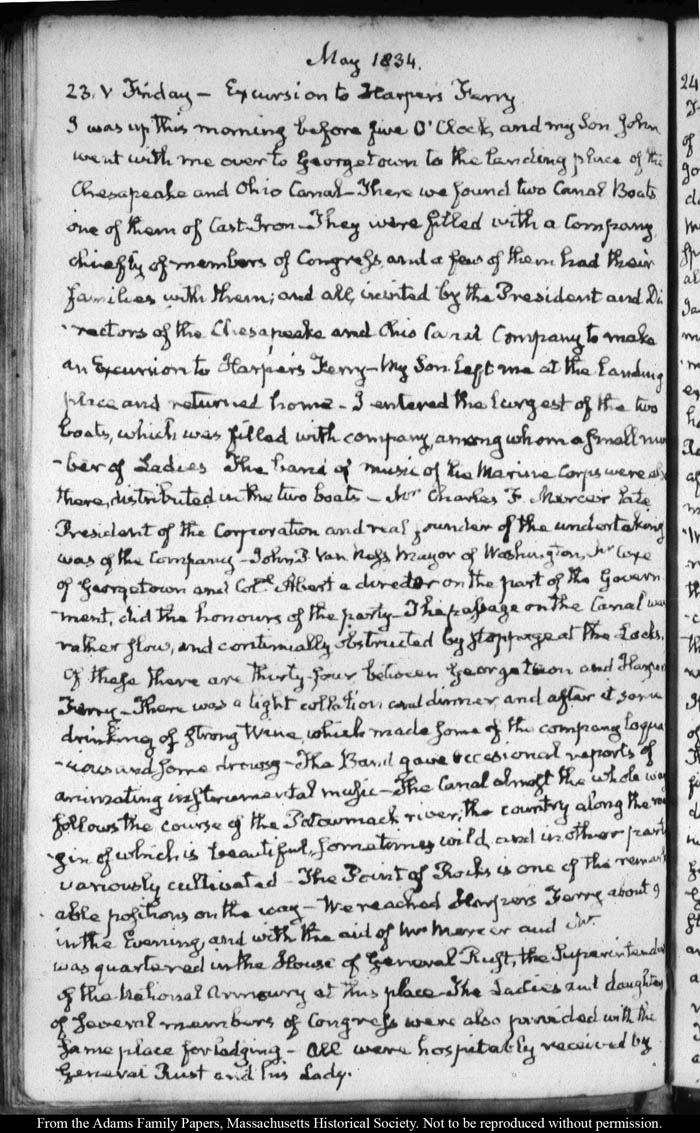 May 1834.
23. V Friday — Excursion to Harper's Ferry
I was up this morning before five O'Clock, and my Son John
went with me over to Georgetown to the landing place of the
Chesapeake and Ohio Canal — There we found two Canal Boats
one of them of Cast Iron — They were filled with a Company,
chiefly of members of Congress, and a few of them had their
families with them; and all, invited by the President and Di
-rectors of the Chesapeake and Ohio Canal Company to make
an Excursion to Harper's Ferry — My Son left me at the landing
place and returned home — I entered the largest of the two
boats, which was filled with company, among whom a small num
-ber of Ladies The band of music of the Marine Corps were also
there, distributed in the two boats — Mr Charles F. Mercer late
President of the Corporation and real founder of the undertaking
was of the Company — John P. Van Ness Mayor of Washington, Mr Coxe
of Georgetown and Coll. Abert a director on the part of the Govern
-ment, did the honours of the party — The passage on the Canal was
rather slow, and continually obstructed by stoppage at the Locks.
Of these there are thirty-four between Georgetown and Harper's
Ferry — There was a light collation and dinner, and after it some
drinking of strong Wine, which made some of the company loqua
-cious and some drowsy — The Band gave occasional reports of
animating instrumental music — The Canal almost the whole way
follows the course of the Potowmack river, the country along the mar
-gin of which is beautiful, sometimes wild, and in other parts
variously cultivated — The Point of Rocks is one of the remark
-able positions on the way — We reached Harper's Ferry about 9
in the Evening, and with the aid of Mr Mercer and Mr
was quartered in the House of General Rust, the Superintendent
of the National Armoury at this place The Ladies and daughters
of several members of Congress were also provided with the
same place for lodging — All were hospitably received by
General Rust and his Lady.
24
From the Adams Family Papers, Massachusetts Historical Society. Not to be reproduced without permission.